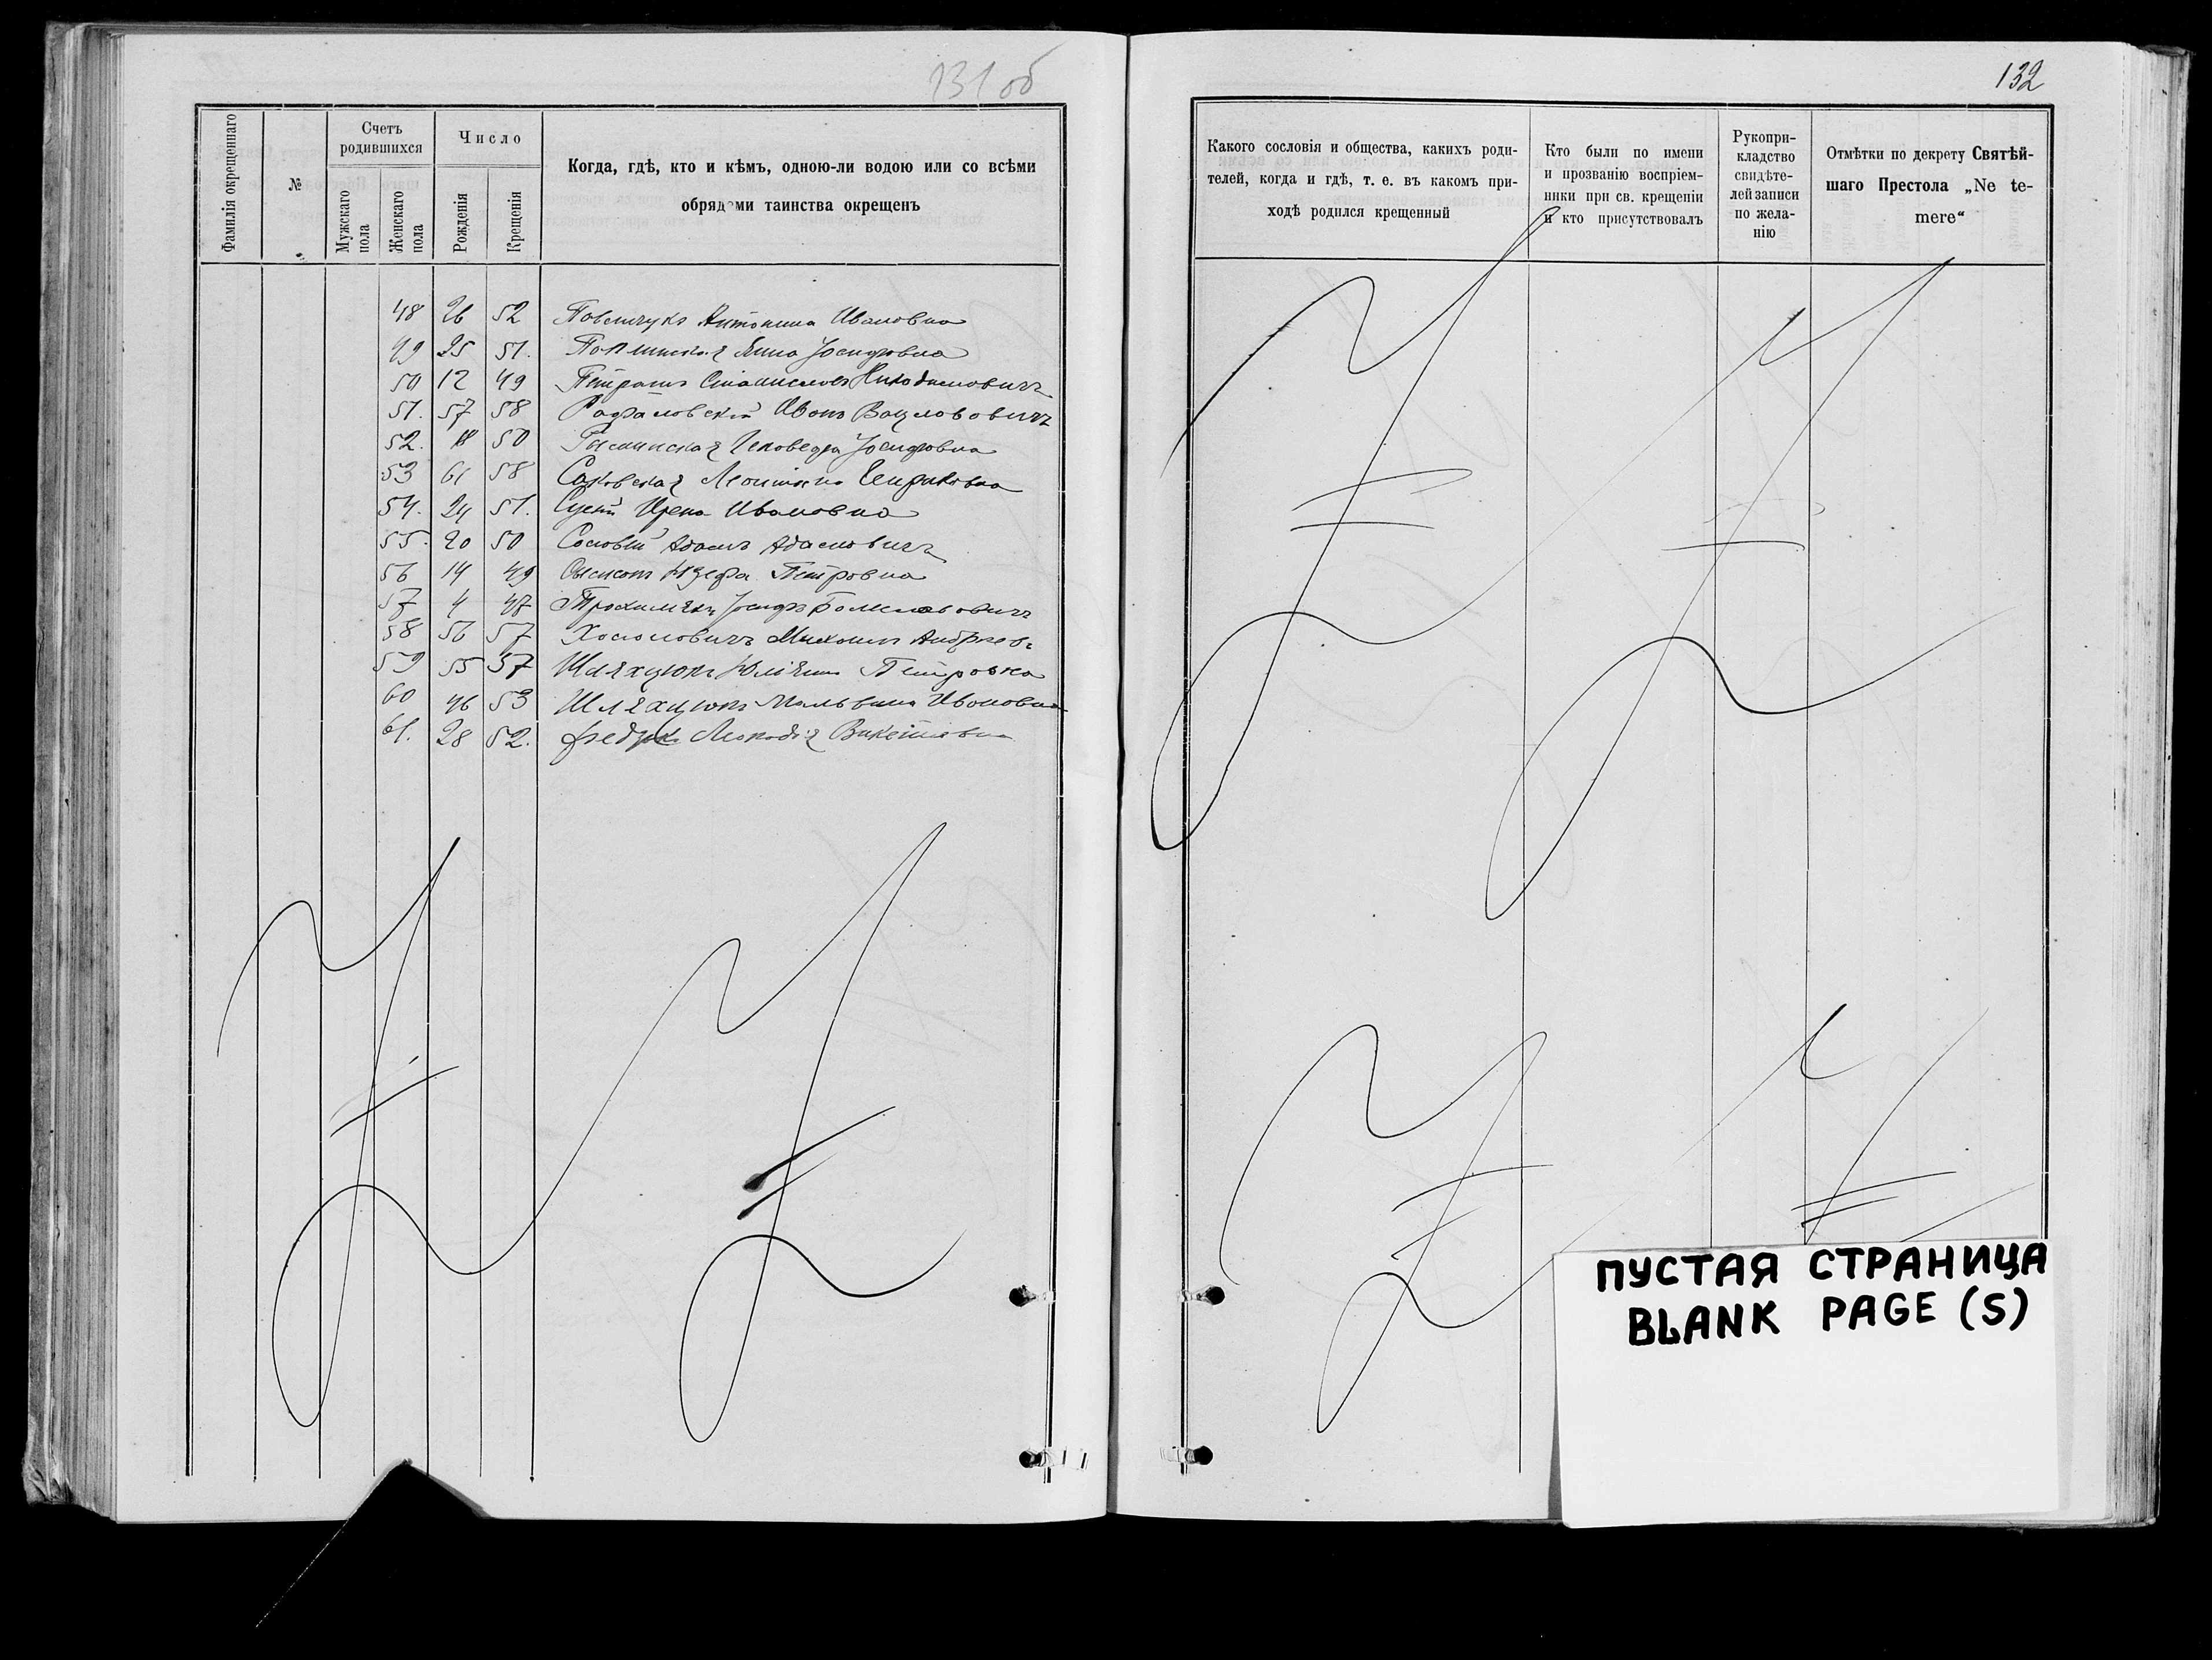 131 об
Фамилія окрещеннаго
№
Счетъ родившихся
Мужскаго пола
Женскаго пола
Число
Рожденія
Крещенія
Когда, гдѣ, кто и кѣмъ, одною-ли водою или со всѣми
обрядами таинства окрещенъ
48 26 52 Антонина Ивановна
49 25 51. Анна Іосифовна
50 12 49 Станиславъ Никодимовичъ
51. 57 58 Рафаловскій Иванъ Вацлавовичъ
52. 18 50 Іосифовна
53 61 58 Саковская Генриховна
54. 24 51. Ирена Ивановна
55. 20 50 Адамъ Адамовичъ
56 14 49 Юзефа Петровна
57 4 47 Іосифъ Болеславовичъ
58 56 57 Михаилъ Андреев.
59 55 57 Шляхцюкъ Юліянна Петровна
60 46 53 Шляхцюкъ Мальвина Ивановна
61. 28 52. Леокадія Викентіевна
132
Какого сословія и общества, какихъ роди-
телей, когда и гдѣ, т. е. въ какомъ при-
ходѣ родился крещенный
Кто были по имени
и прозванію воспріем-
ники при св. крещеніи
и кто присутствовалъ
Рукопри-
кладство
свидѣте-
лей записи
по жела-
нію
Отмѣтки по декрету Святѣй-
шаго Престола „Ne te-
mere“
ПУСТАЯ СТРАНИЦА
BLANK PAGE (S)